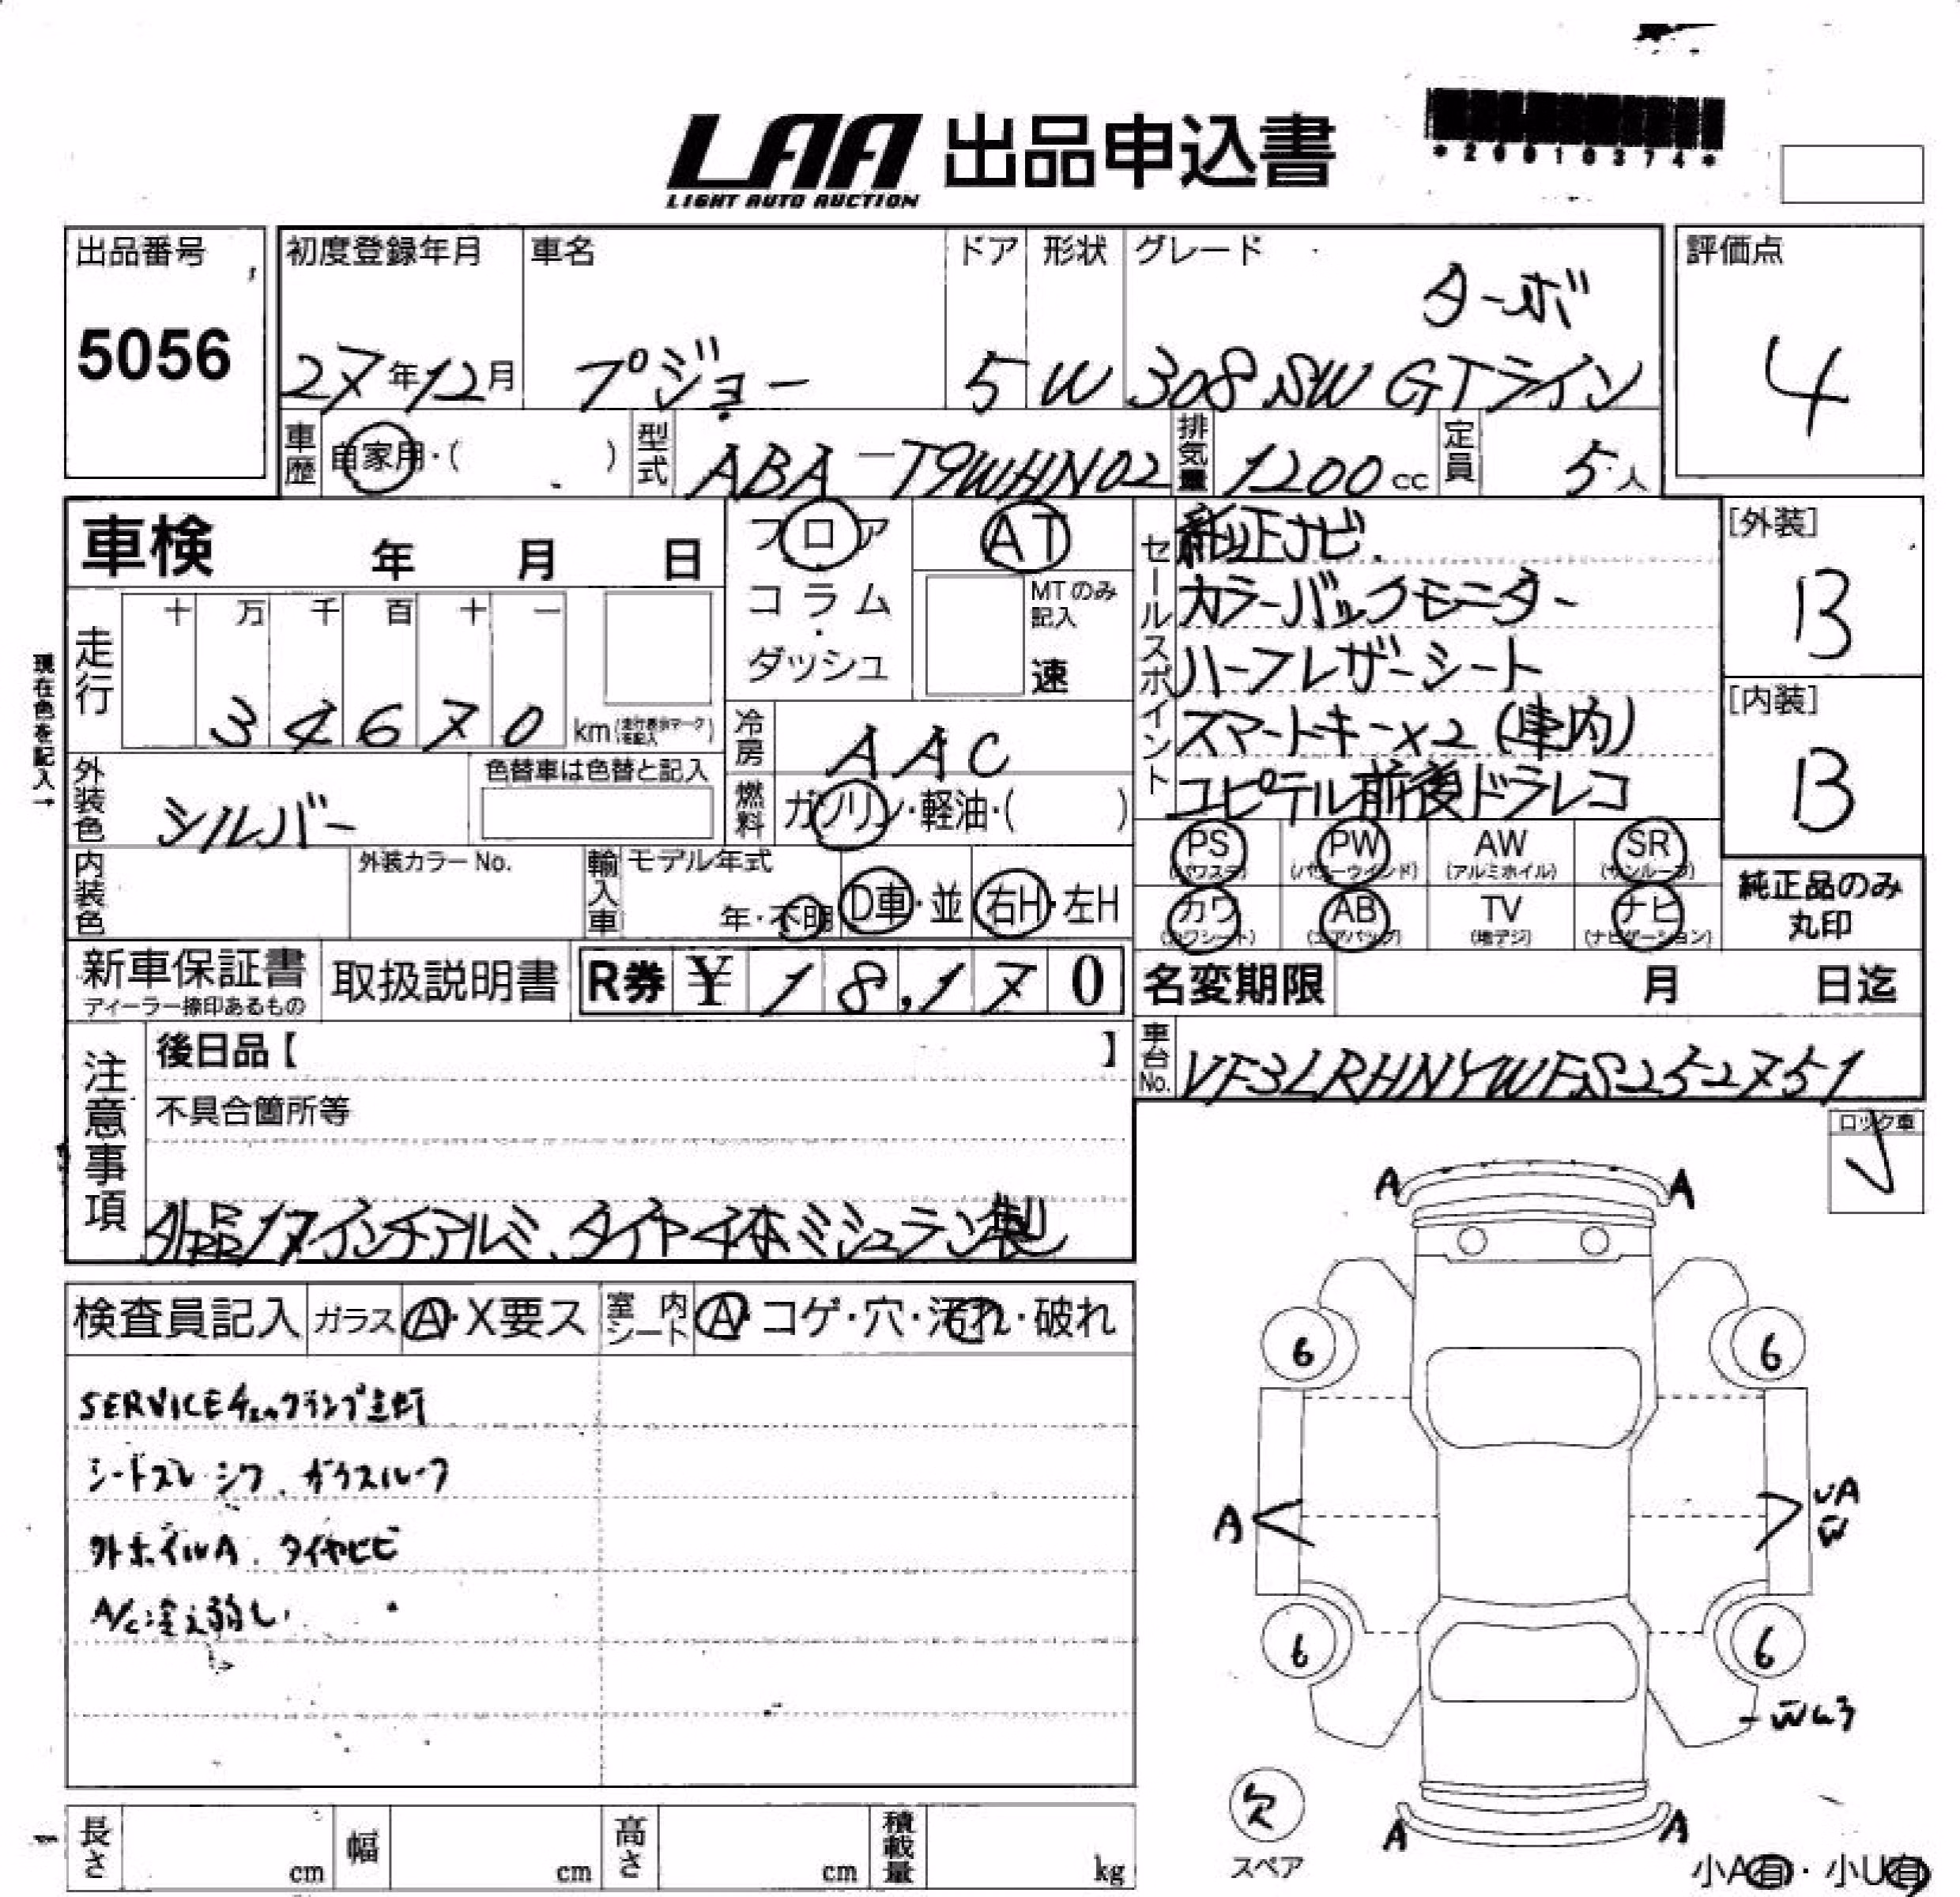 LAA 出品申込書
LIGHT AUTO AUCTION
*20010374*
出品番号
5056
初度登録年月
27年12月
車名
プジョー
ドア
5
形状
W
グレード
ターボ
308 SW GTライン
評価点
4
車歴
自家用・( )
型式
ABA-T9WHN02
排気量
1200cc
定員
5人
車検 年 月 日
フロア
コラム・
ダッシュ
AT
MTのみ
記入
速
現在色を記入→
走行
十 万 千 百 十 一
3 4 6 7 0 km
外装色
シルバー
色替車は色替と記入
冷房
AAC
燃料
ガソリン・軽油・( )
内装色
外装カラーNo.
輸入車
モデル年式
年・不明
D車・並
右H・左H
セールスポイント
純正ナビ
カラーバックモニター
ハーフレザーシート
スマートキー×2(車内)
ユピテル前後ドラレコ
[外装]
B
[内装]
B
PS (パワステ)
PW (パワーウインド)
AW (アルミホイル)
SR (サンルーフ)
カワ (カワシート)
AB (エアバッグ)
TV (地デジ)
ナビ (ナビゲーション)
純正品のみ
丸印
新車保証書
ディーラー捺印あるもの
取扱説明書
R券 ¥18,170
名変期限 月 日迄
車台No.
VF3LRHNYWFS252751
注意事項
後日品【 】
不具合箇所等
外品17インチアルミ、タイヤ4本ミシュラン製
ロック車
検査員記入
ガラス
A・X要ス
室内シート
A・コゲ・穴・汚れ・破れ
SERVICEチェックランプ点灯
シートスレ シワ、ガラスルーフ
外ホイルA、タイヤヒビ
A/C冷え弱し
A A
6 6
A UA
W
6 6
W
欠
スペア
A A
小A有・小U有
長さ cm
幅 cm
高さ cm
積載量 kg